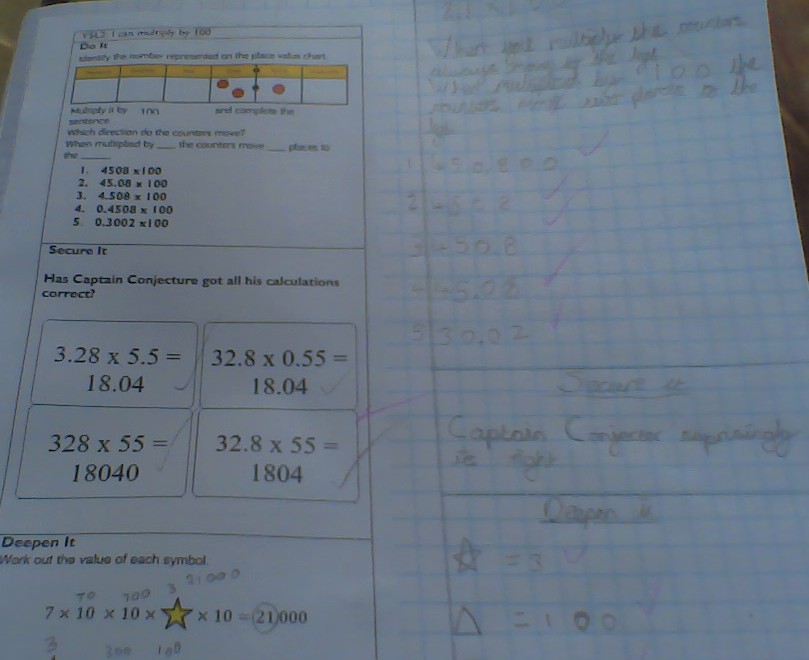 I can multiply by 100
Do It
Identify the number represented on the place value chart.
Multiply it by 100 and complete the
sentence
Which direction do the counters move?
When multiplied by ____ the counters move ____ places to
the _____
1. 4508 x100
2. 45.08 x 100
3. 4.508 x 100
4. 0.4508 x 100
5 0.3002 x100
Secure It
Has Captain Conjecture got all his calculations
correct?
3.28 x 5.5 =
18.04
32.8 x 0.55 =
18.04
328 x 55 =
18040
32.8 x 55 =
1804
Deepen It
Work out the value of each symbol.
70 700 3 21000
7 × 10 × 10 × × 10 = 21000
3 300 100
When you multiply the counters
always move to the
multiplied by 100 the
counters move places to the
1 450,800
2 4508
3 450.8
4 45.08
5 30.02
Secure it
Captain Conjector suprisingly
is right
Deepen it
= 3
= 100